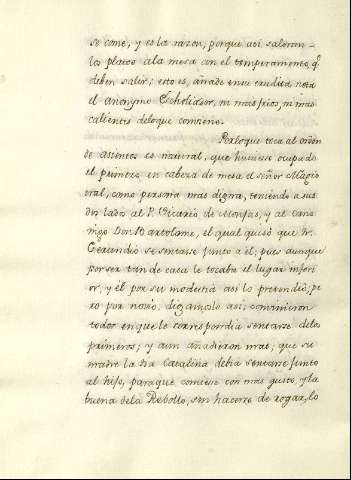 se come, y es la razon, porque asi saldran
los platos à la mesa con el temperamento, q.^e
deben salir; esto es, añade en su erudita nota
el anonymo Escholiador, ni mas frios, ni mas
calientes de loque conviene.
Por loque toca al orden
de asientos es natural, que huviese ocupado
el primero en cabeza de mesa el señor Magis
tral, como persona mas digna, teniendo a sus
dos lados al P. Vicario de Monjas, y al cano
nigo Don Bartolome, el qual quisò que Fr.
Gerundio se sentase junto a él; pues aunque
por ser tan de casa le tocaba el lugar inferi
or, y el por su modestia asi lo pretendiò; pe
ro por novio, digamoslo asi, convinieron
todos en que le correspondia sentarse delos
primeros; y aun añadieron mas; que su
madre la tia Catalina debia sentarse junto
al hijo, para que comiese con mas gusto, y la
buena dela Rebollo, sin hacerse de rogar, lo